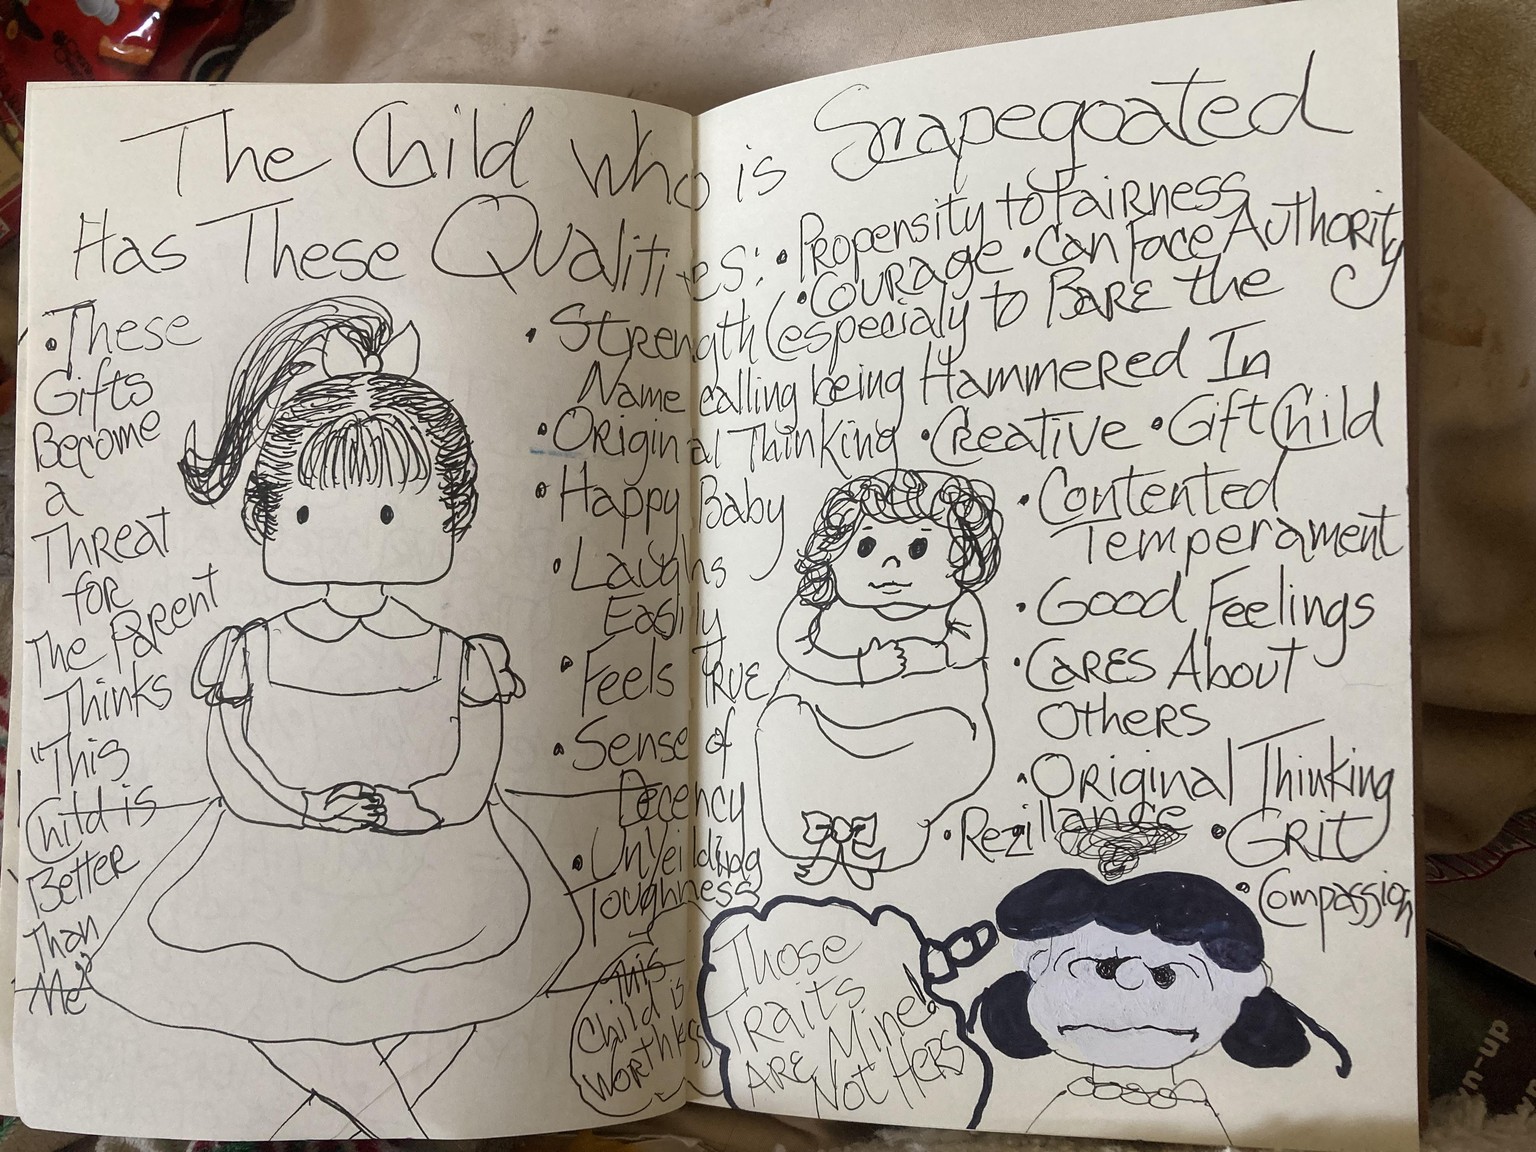 The Child who is Scrapegoated
Has These Qualities:
• Propensity to Fairness
• Courage • Can Face Authority
• Strength (especialy to Bare the
Name calling being Hammered In
• Original Thinking • Creative • Gift Child
• Happy Baby
• Laughs
Easily
• Feels True
• Sense of
Decency
• UnYeilding
Toughness
• Contented
Temperament
• Good Feelings
• Cares About
Others
• Original Thinking
• Rezillance • Grit
• Compassion
• These
Gifts
Become
a
Threat
for
The Parent
Thinks
"This
Child is
Better
Than
Me"
This
Child is
Worthless
Those
Traits
Are Mine!
Not Hers
n-up